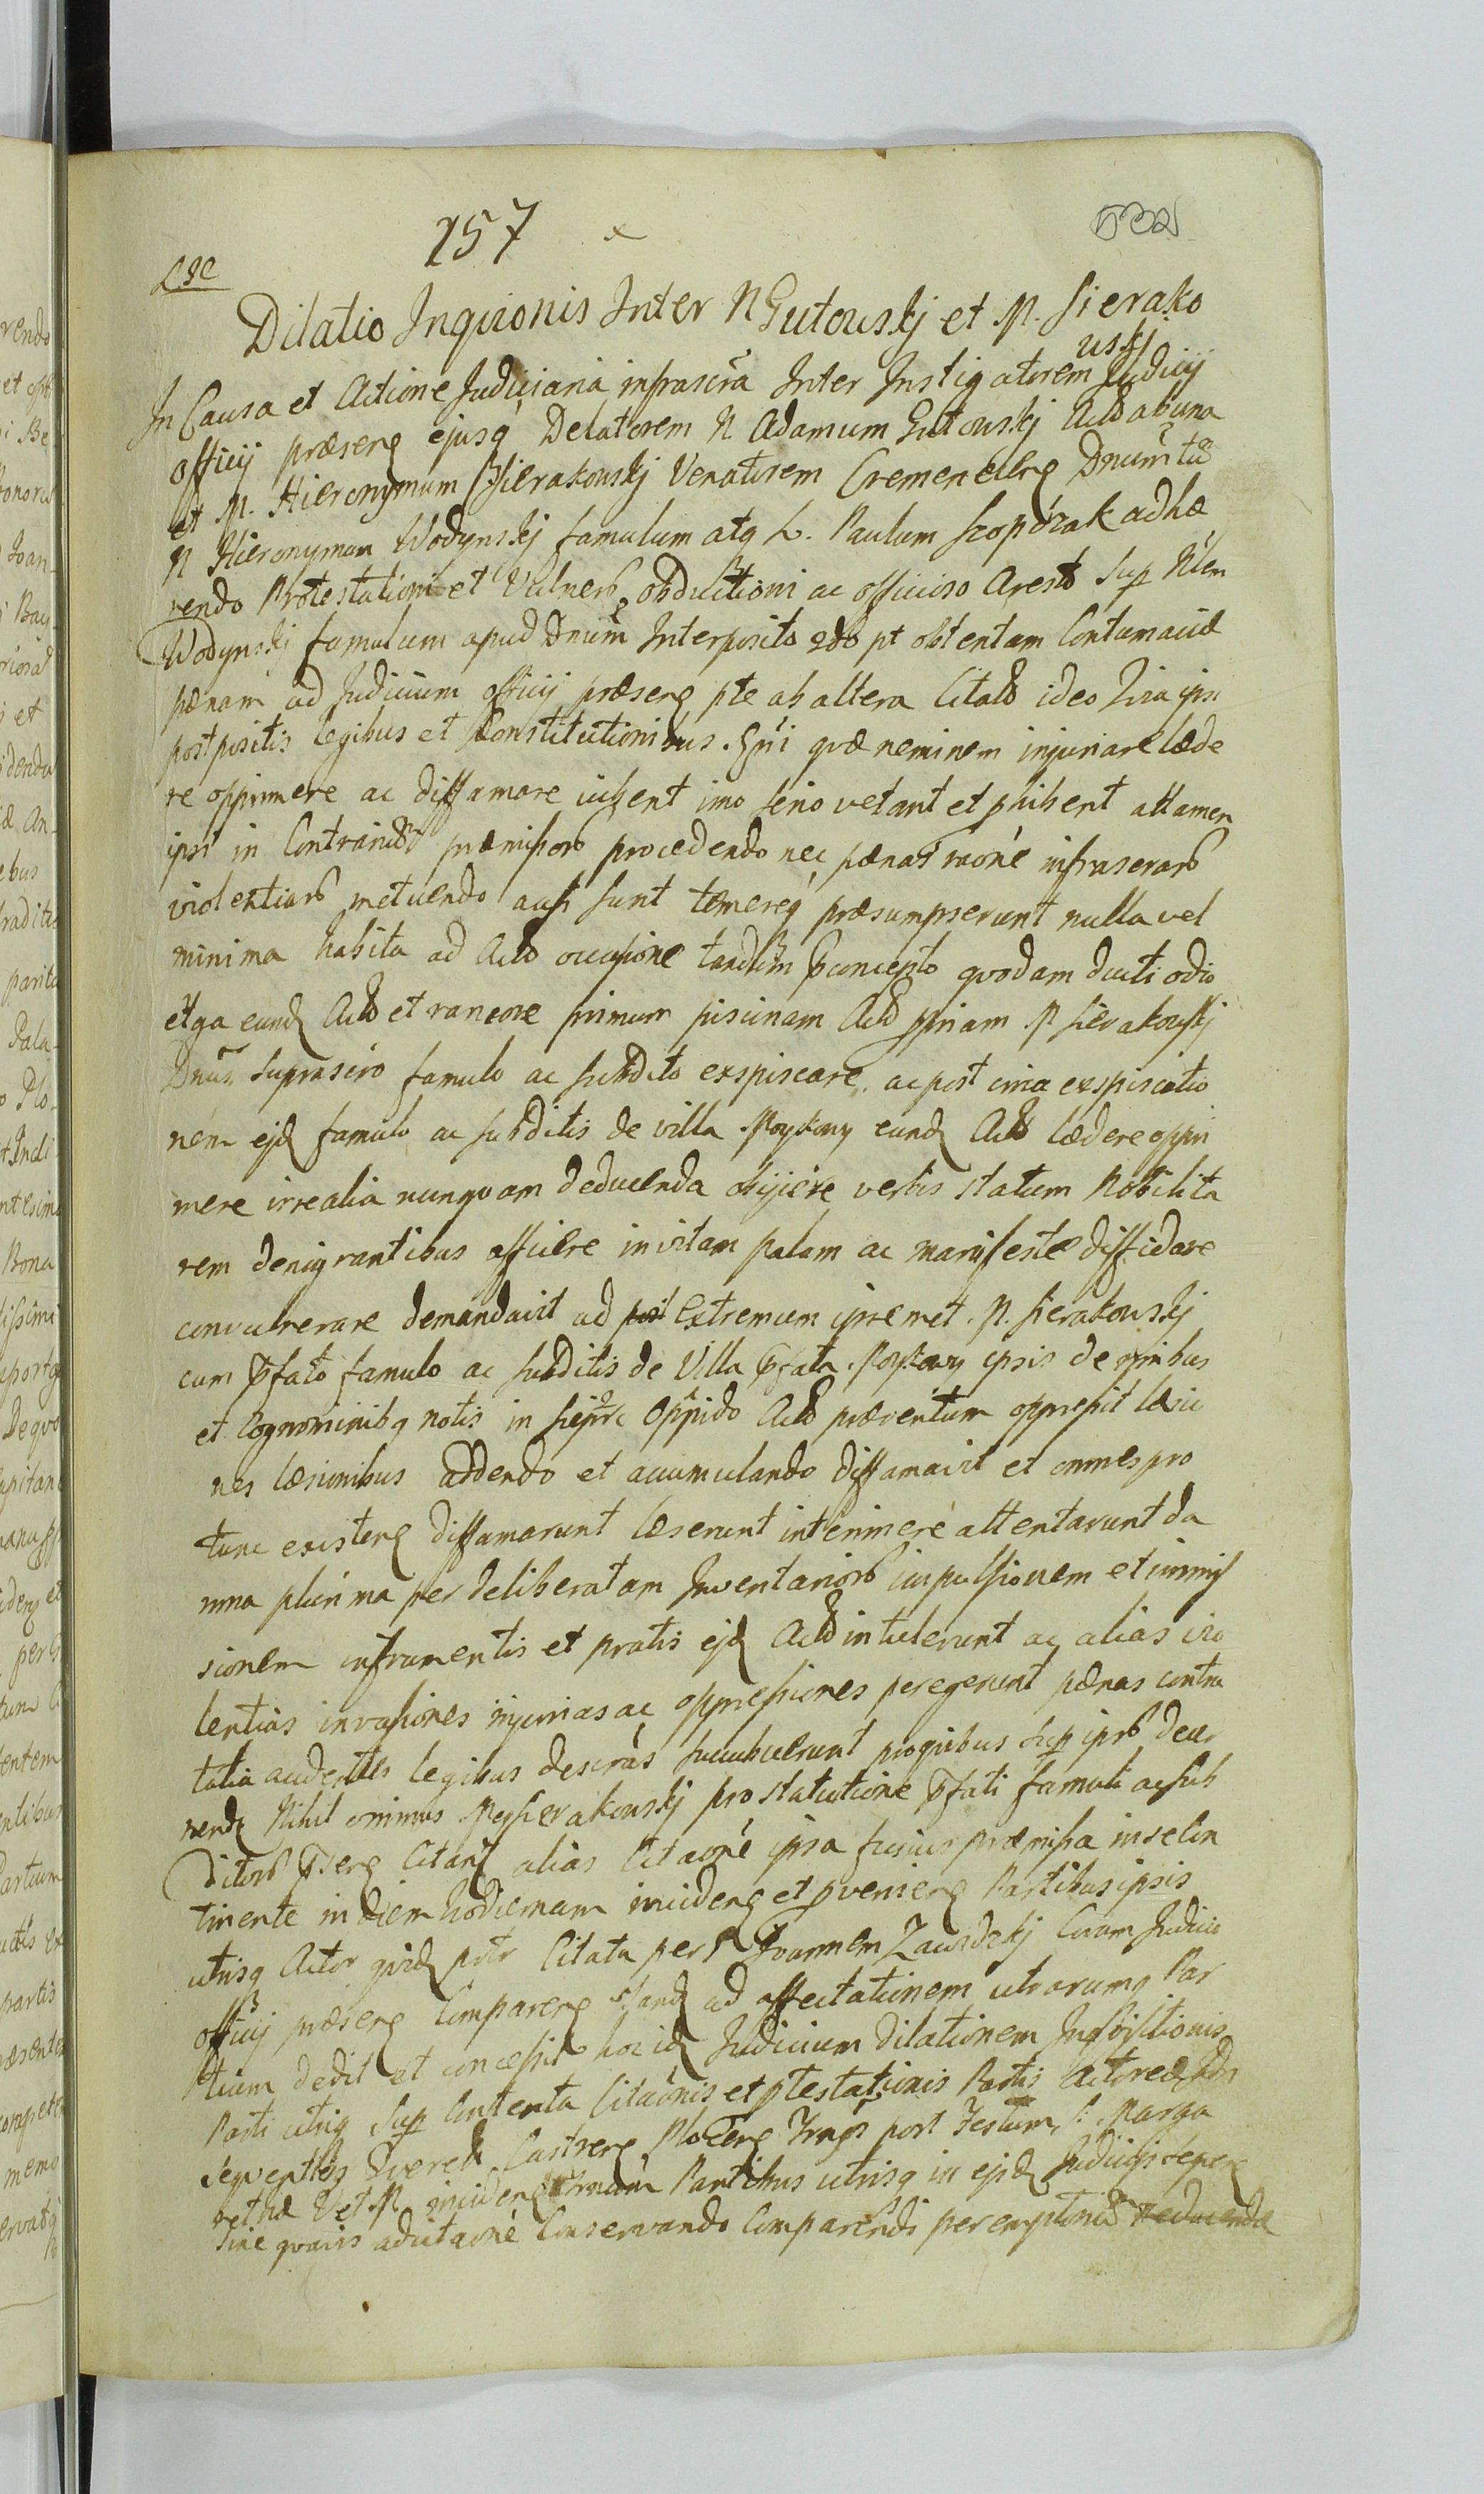 157
Dilatio Inqvionis Inter N Gutowskj et M. Sierako
wskj
In Causa et Actione Judiciaria infrascra Inter Instigatorem Judicij
officij præseng ejusq Delatorem N Adamum Gutowskj Actó ab una
et M. Hieronymum Sierakowskj Venatorem Cremeneceng Dnum tū
N Hieronymum Wodynskj famulum atq L. Paulum adhæ
rendo Protestationi et Vulnerō obductioni ac officioso Aresto Sup
Wodynskj famulum apud Dnum Interposito 2do pt obtentam Contumaciæ
pænam ad Judicium officij præseng pte ab altera Citatō ideo qvia ipsi
postpositis legibus et Constitutionibus. qvæ neminem injuriare læde
re opprimere ac diffamare iubent imo serio vetant et phibent attamen
ipsi in Contrariū præmissorō procedendo nec pænas raōne infrascrarō
violentiarō metuendo ausi sunt temereq præsumpserunt nulla vel
minima habita ad Actō occasione tandum pconcepto qvodam ducti odio
erga eund Actō et rancore primum piscinam Actō ppriam M Sierakowskj
Dnus suprascro famulo ac subdito expiscare, ac post expiscatio
nem ejd famulo ac subditis de villa eund Actō lædere oppri
mere irrealia nunqvam deducenda objicere verbis statum Nobilita
rem denigrantibus afficere in vitam palam ac manifeste diffidare
convulnerare demandavit ad post Extremum ipsemet M. Sierakowskj
cum pfato famulo ac subditis de Villa pfata ipsis de nnibus
et Cognominibq notis in Oppido Actō præventum oppressit læsio
nes læsionibus addendo et accumulando diffamavit et omnes pro
tunc existeng diffamarunt læserunt interimere attentarunt da
mna plurima per deliberatam Inventariorō impulsionem et immis
sionem in frumentis et pratis ejd Actō intulerunt ac alias vio
lentias invasiones injurias ac oppressiones peregerunt pænas contra
talia audentes legibus descras succubuerunt pro qvibus Sup ipsō decer
nend Nihil ominus M Sierakowskj pro statutione pfati famuli ac sub
ditorō pseng Citant alias Citaōne ipsa fusius præmissa in se con
tinente in diem hodiernam incideng et pvenieng Partibus ipsis
utrisq Actor qvid Citata per N Joannem Zawidzkj Coram Judicio
officij præseng Compareng stand ad affectationem utrarumq Par
tium dedit et concessit hoc id Judicium dilationem Inqvisitionis
Parti utriq Sup Contenta Citaōnis et ptestationis Partis Actoreæ
seqventibq Qverel Castreng Ploceng post Festum S. Marga
rethæ V et M incideng Partibus utrisq in ejd Judicijs
sine qvavis adcitaōne Conservando Comparendi peremptoriū deducenda